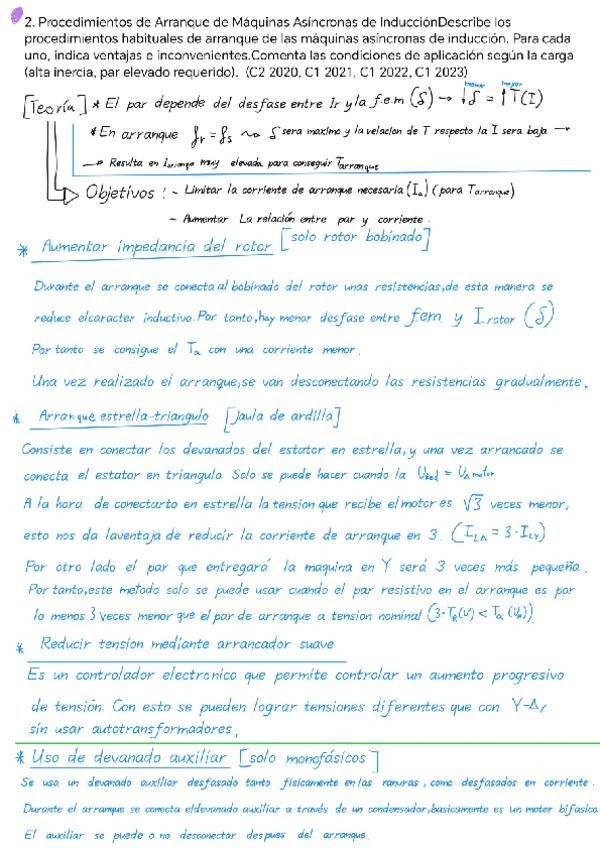 2. Procedimientos de Arranque de Máquinas Asíncronas de InducciónDescribe los
procedimientos habituales de arranque de las máquinas asíncronas de inducción. Para cada
uno, indica ventajas e inconvenientes.Comenta las condiciones de aplicación según la carga
(alta inercia, par elevado requerido). (C2 2020, C1 2021, C1 2022, C1 2023)
[Teoría] * El par depende del desfase entre Ir y la f.e.m (δ) → ↓δ = ↑T(I)
menor mayor
* En arranque fr = fs ~> δ sera maximo y la velacion de T respecto la I sera baja →
→ Resulta en Iarranque muy elevada para conseguir Tarranque
Objetivos : - Limitar la corriente de arranque necesaria (Ia) (para Tarranque)
- Aumentar La relación entre par y corriente.
* Aumentar impedancia del rotor [solo rotor bobinado]
Durante el arranque se conecta al bobinado del rotor unas resistencias,de esta manera se
reduce elcaracter inductivo. Por tanto,hay menor desfase entre f.e.m. y I rotor (δ)
Por tanto se consigue el Ta con una corriente menor.
Una vez realizado el arranque,se van desconectando las resistencias gradualmente.
* Arranque estrella-triangulo [jaula de ardilla]
Consiste en conectar los devanados del estator en estrella,y una vez arrancado se
conecta el estator en triangulo Solo se puede hacer cuando la URed = UΔ motor
A la hora de conectarto en estrella la tension que recibe el motor es √3 veces menor,
esto nos da laventaja de reducir la corriente de arranque en 3. (ILΔ = 3·ILY)
Por otro lado el par que entregará la maquina en Y será 3 veces más pequeña.
Por tanto,este metodo solo se puede usar cuando el par resistivo en el arranque es por
lo menos 3 veces menor que el par de arranque a tension nominal (3·TR(U) < Ta (Un))
* Reducir tension mediante arrancador suave
Es un controlador electronico que permite controlar un aumento progresivo
de tensión. Con esto se pueden lograr tensiones diferentes que con Y-Δ,
sin usar autotransformadores.
* Uso de devanado auxiliar [solo monofásicos]
Se usa un devanado auxiliar desfasado tanto físicamente en las ranuras, como desfasados en corriente.
Durante el arranque se conecta eldevanado auxiliar a través de un condensador,basicamente es un motor bifasico
El auxiliar se puede o no desconectar despues del arranque.